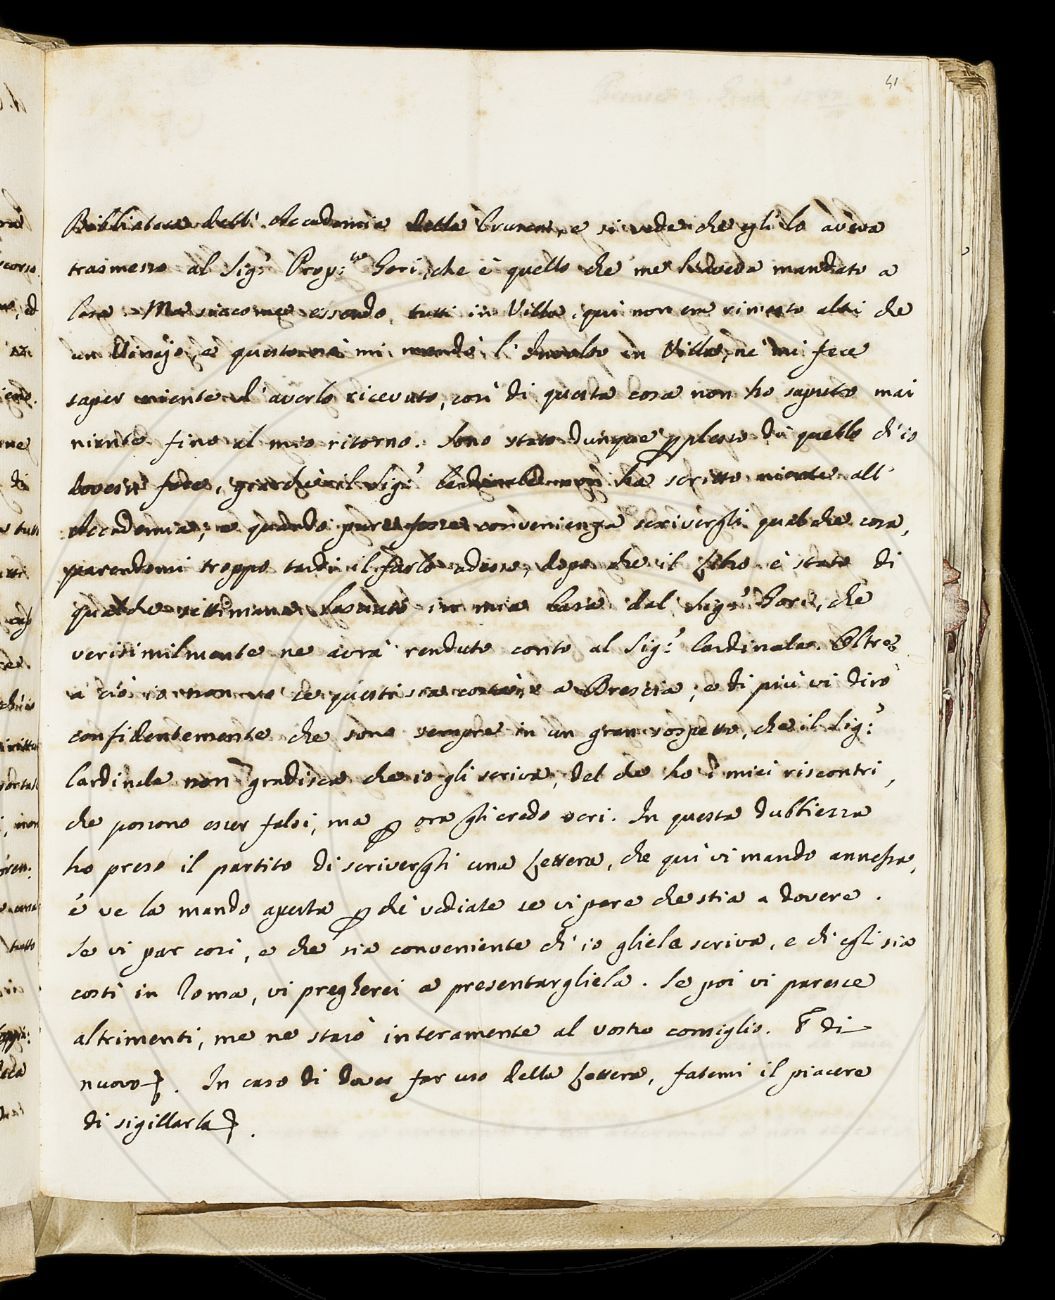 41
Biblioteca dell'Accademia della Crusca, e si vede che egli lo aveva
trasmesso al Sig.r Prop.to Gori, che è quello che me l'doveva mandato a
Casa. Ma siccome essendo tutti in Villa, qui non era rimasto altri che
un Vinajo, e questo nè mi mandò l'Involto in Villa, nè mi fece
saper niente d'averlo ricevuto, così di questa cosa non ho saputo mai
niente fino al mio ritorno. Sono stato dunque pplesso di quello ch'io
dovessi fare, giacchè il Sig.r Cardinale non ha scritto niente all'
Accademia; e quando pure fosse convenienza scrivergli qualche cosa,
parendomi troppo tardi il farlo adesso, dopo che il Libro è stato di
qualche settimana lasciato in mia Casa dal Sig.r Gori, che
verisimilmente ne avrà renduto conto al Sig.r Cardinale. Oltre
a ciò io non so se questi sia costì, o a Brescia; e di più vi dirò
confidentemente che sono sempre in un gran sospetto, che il Sig.r
Cardinale non gradisca che io gli scriva, del che ho i miei riscontri,
che possono esser falsi, ma p ora gli credo veri. In questa dubbiezza
ho preso il partito di scrivergli una Lettera, che quì vi mando annessa,
e ve la mando aperta pchè vediate se vi pare che stia a dovere.
Se vi par così, e che sia conveniente ch'io gliela scriva, e ch'egli sia
costì in Roma, vi pregherei a presentargliela. Se poi vi paresse
altrimenti, me ne starò interamente al vostro consiglio. E di
nuovo. In caso di dover far uso della Lettera, fatemi il piacere
di sigillarla.